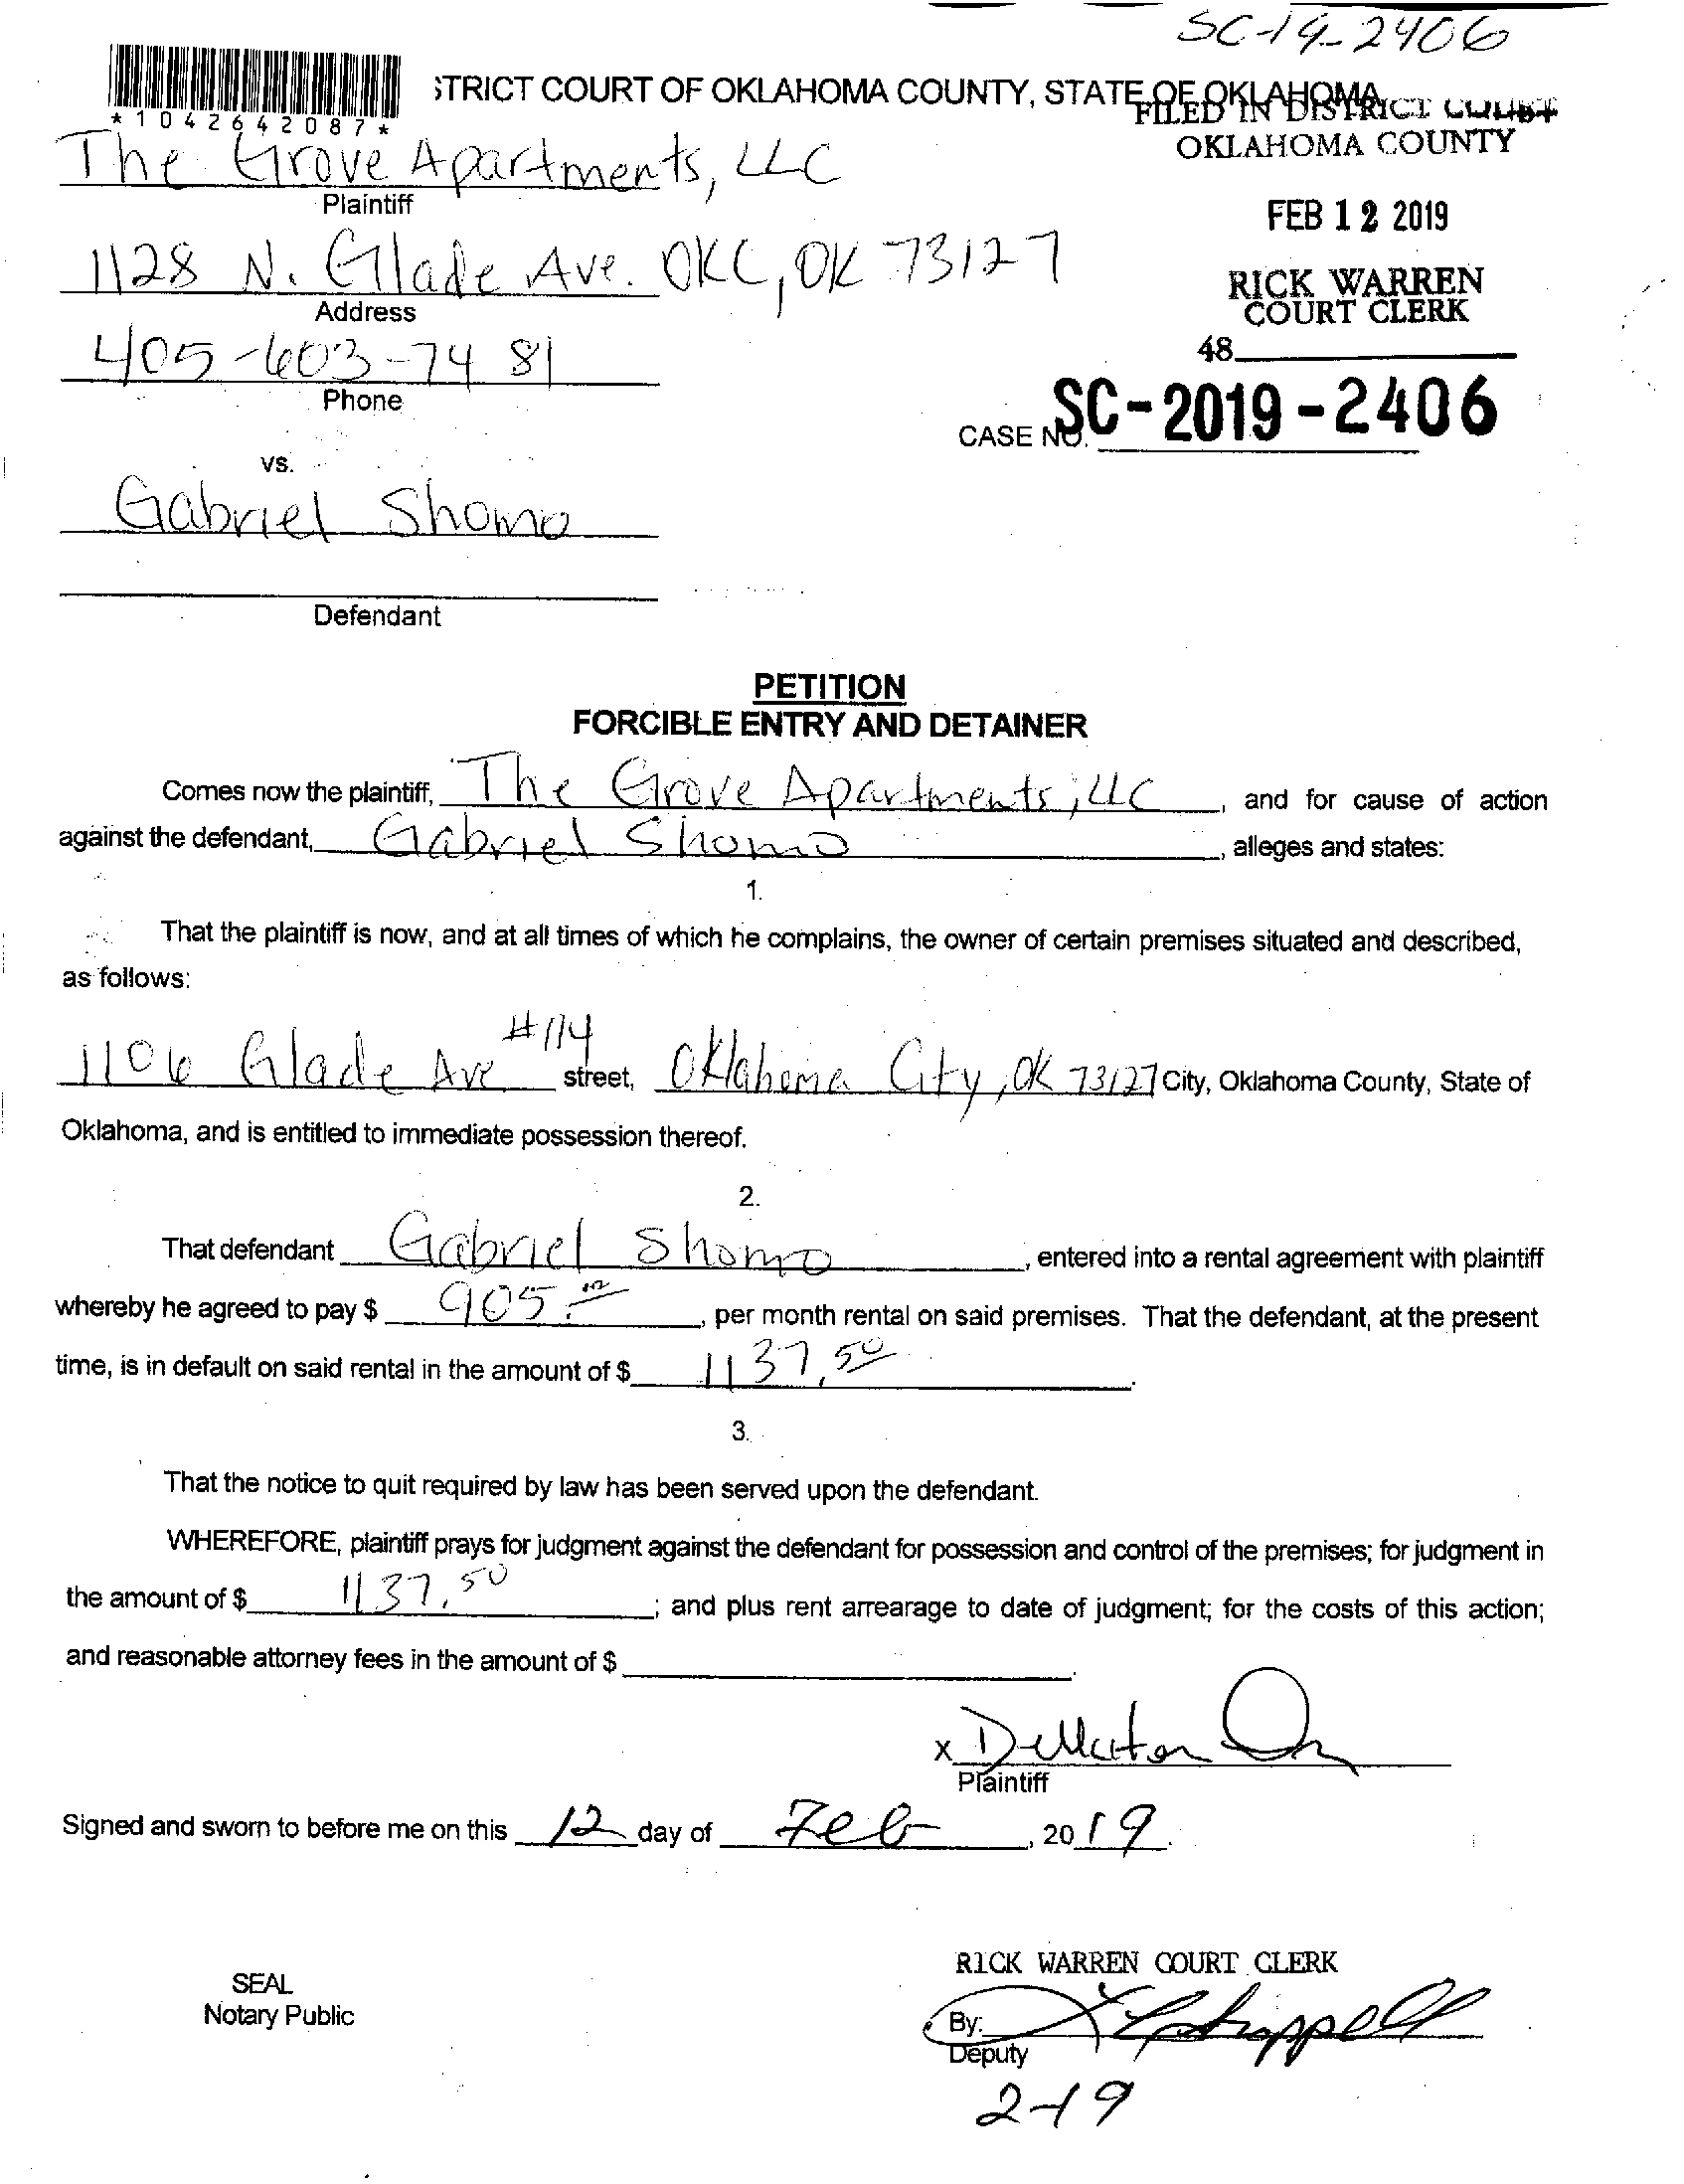 SC-19-2406
STRICT COURT OF OKLAHOMA COUNTY, STATE OF OKLAHOMA
*1042642087*
FILED IN DISTRICT COURT
OKLAHOMA COUNTY
The Grove Apartments, LLC
Plaintiff
FEB 12 2019
1128 N. Glade Ave. OKC, OK 73127
Address
RICK WARREN
COURT CLERK
405-603-7481
Phone
48
CASE NO. SC-2019-2406
vs.
Gabriel Shomo
Defendant
PETITION
FORCIBLE ENTRY AND DETAINER
Comes now the plaintiff, The Grove Apartments, LLC, and for cause of action
against the defendant, Gabriel Shomo, alleges and states:
1.
That the plaintiff is now, and at all times of which he complains, the owner of certain premises situated and described,
as follows:
1106 Glade Ave #114 street, Oklahoma City, OK 73127 City, Oklahoma County, State of
Oklahoma, and is entitled to immediate possession thereof.
2.
That defendant Gabriel Shomo, entered into a rental agreement with plaintiff
whereby he agreed to pay $ 905.00, per month rental on said premises. That the defendant, at the present
time, is in default on said rental in the amount of $ 1137.50.
3.
That the notice to quit required by law has been served upon the defendant.
WHEREFORE, plaintiff prays for judgment against the defendant for possession and control of the premises; for judgment in
the amount of $ 1137.50; and plus rent arrearage to date of judgment; for the costs of this action;
and reasonable attorney fees in the amount of $
x
Plaintiff
Signed and sworn to before me on this 12 day of Feb, 2019.
RICK WARREN COURT CLERK
SEAL
Notary Public
By:
Deputy
2-19